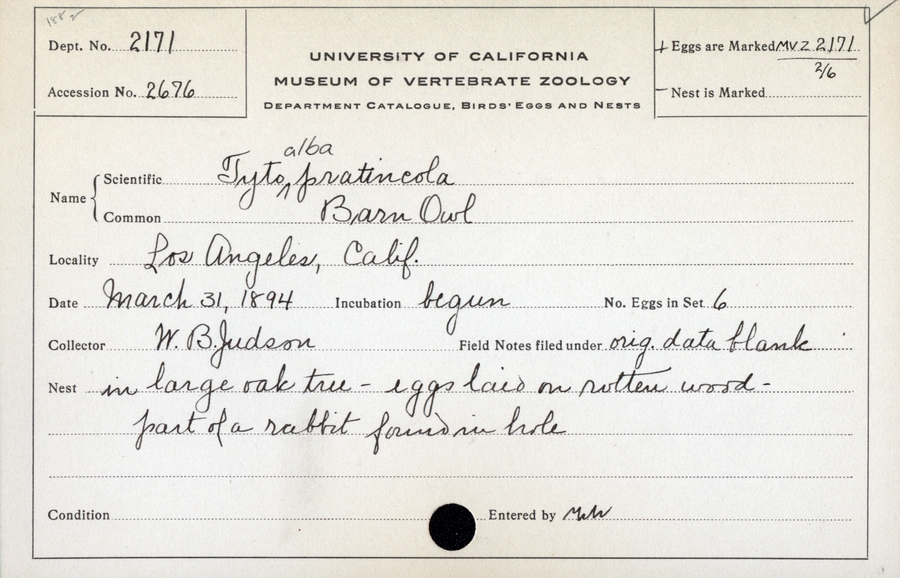 Dept. No. 2171
Accession No. 2676
UNIVERSITY OF CALIFORNIA
MUSEUM OF VERTEBRATE ZOOLOGY
DEPARTMENT CATALOGUE, BIRDS' EGGS AND NESTS
+ Eggs are Marked MVZ 2171
2/6
– Nest is Marked
alba
Name Scientific Tyto ^ pratincola
Common Barn Owl
Locality Los Angeles, Calif.
Date March 31, 1894 Incubation begun No. Eggs in Set 6
Collector W. B. Judson Field Notes filed under orig. data blank
Nest in large oak tree – eggs laid on rotten wood –
part of a rabbit found in hole
Condition Entered by